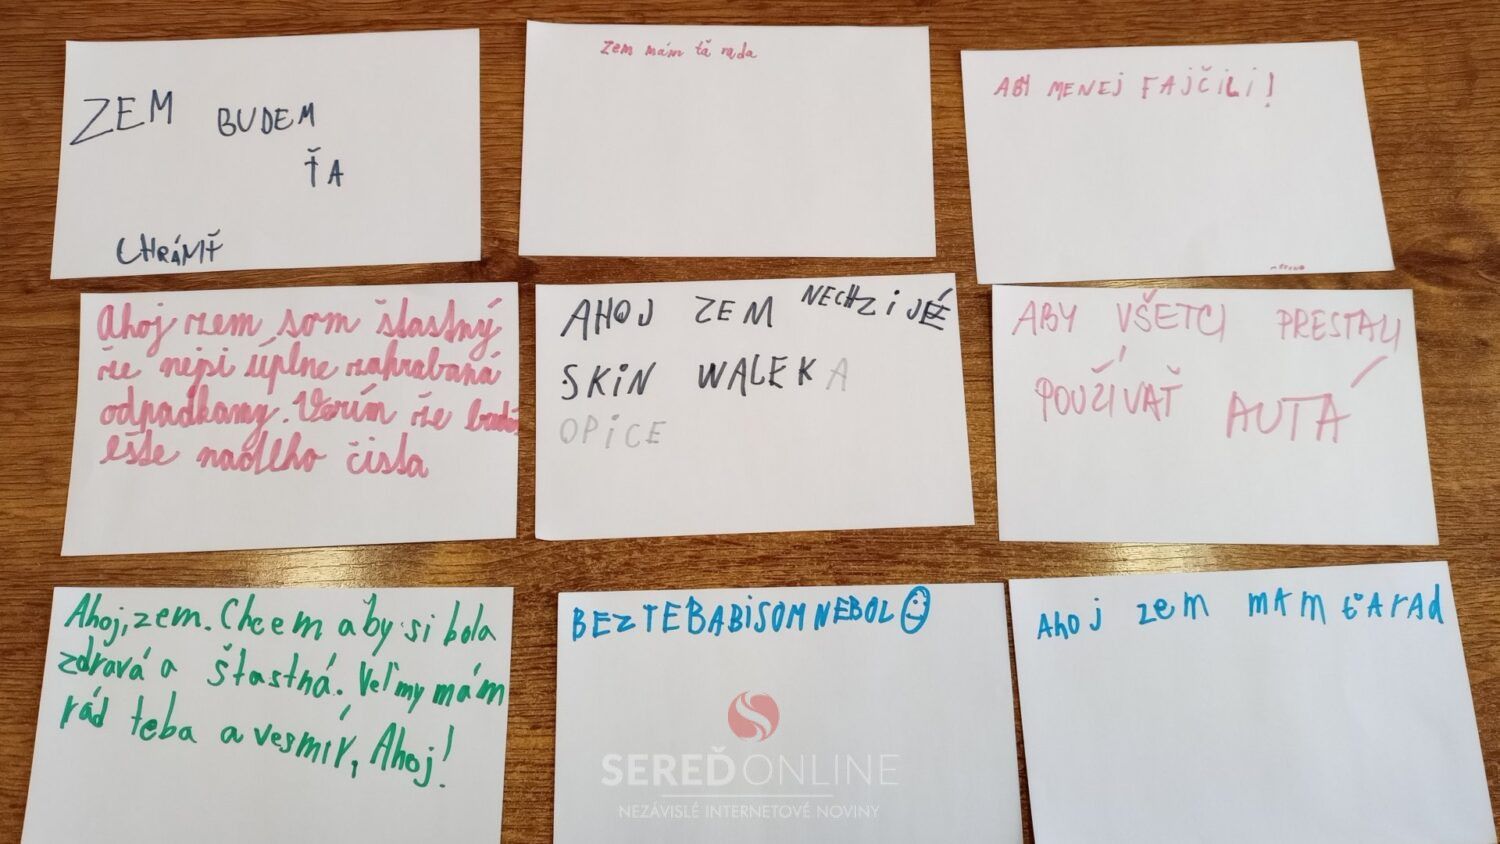 ZEM BUDEM
ŤA
CHRÁNIŤ
Zem mám ťa rada
ABY MENEJ FAJČILI!
Ahoj zem som šťastný
že nejsi úplne zahrabaná
odpadkamy. Verím že budeš
ešte nadlho čista
AHOJ ZEM NECHZIJÉŽ
SKIN WALEKA
OPICE
ABY VŠETCI PRESTALI
POUŽÍVAŤ AUTÁ
Ahoj, zem. Chcem aby si bola
zdravá a šťastná. Veľmy mám
rád teba a vesmír, Ahoj!
BEZ TEBA BI SOM NEBOL
Ahoj zem MAM ťA rAd
SEREĎ ONLINE
NEZÁVISLÉ INTERNETOVÉ NOVINY